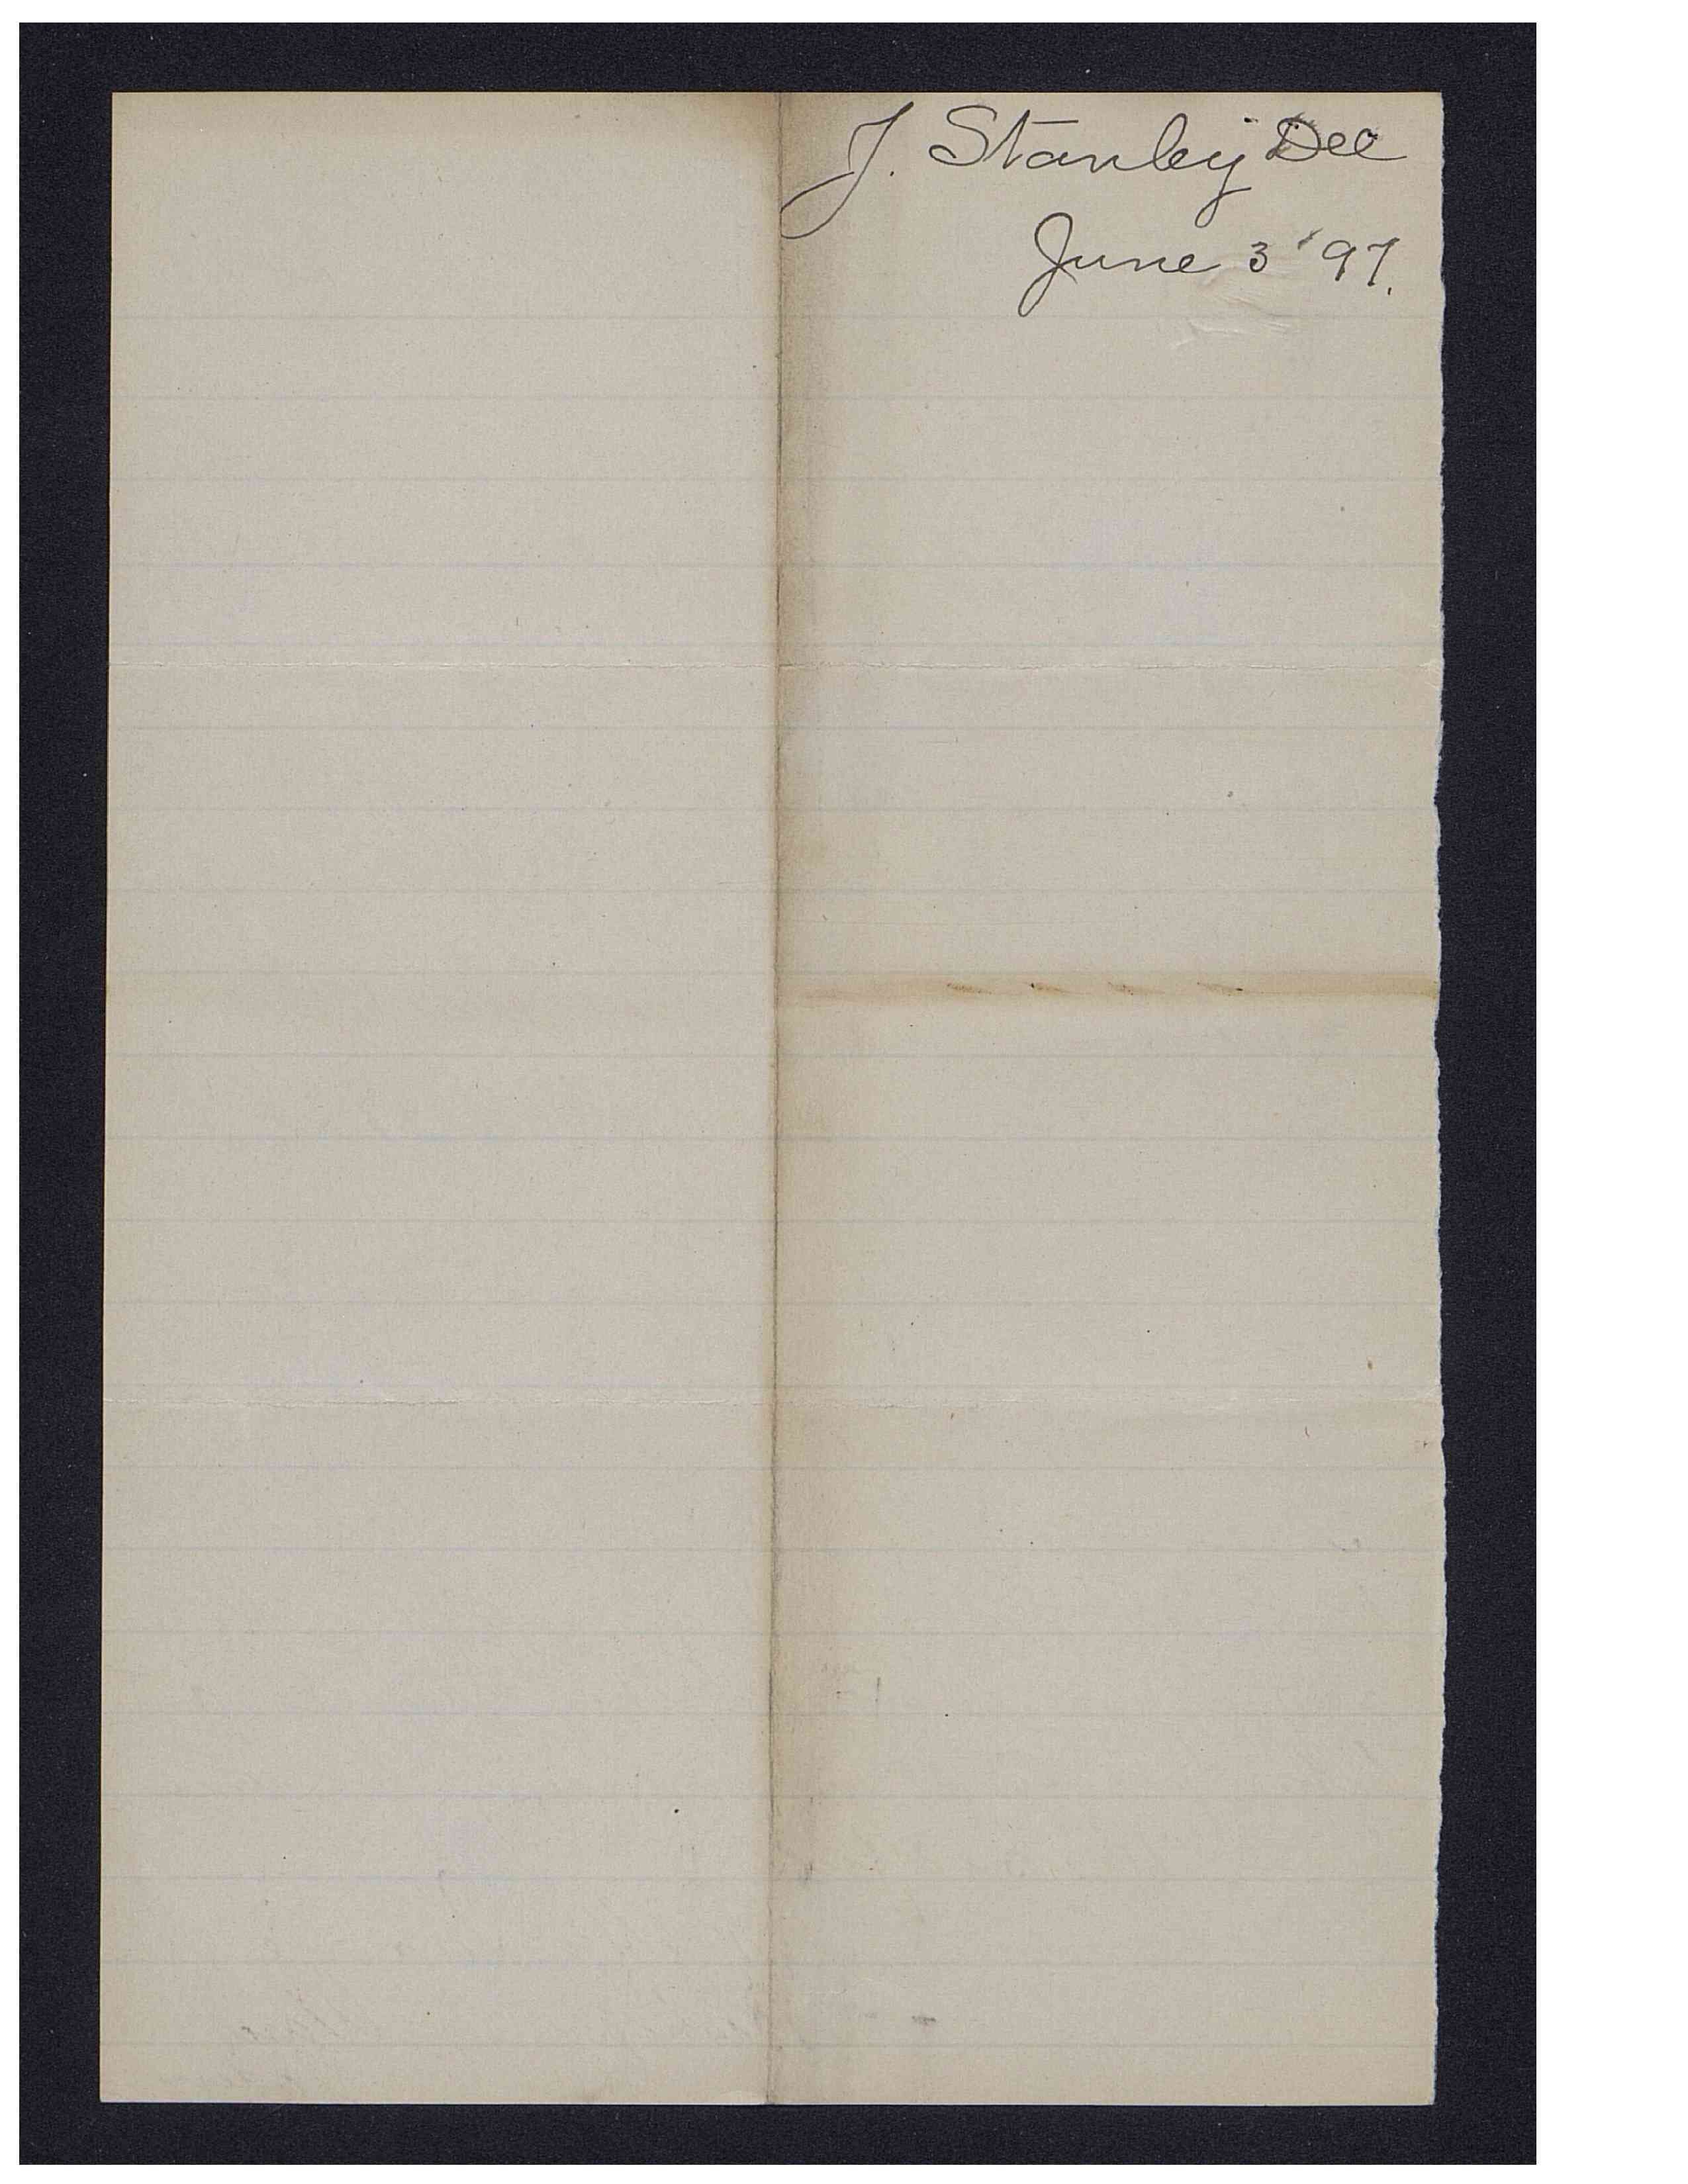 J. Stanley Dee
June 3 '97.